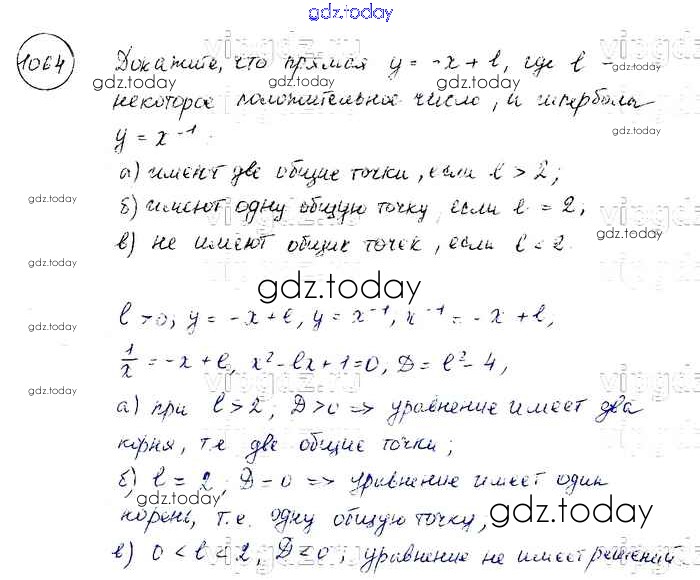 gdz.today
1064 Докажите, что прямая y = -x + l, где l -
некоторое положительное число, и гипербола
y = x⁻¹.
а) имеют две общие точки, если l > 2;
б) имеют одну общую точку, если l = 2;
в) не имеют общих точек, если l < 2.
gdz.today
l > 0, y = -x + l, y = x⁻¹, x⁻¹ = -x + l,
1/x = -x + l, x² - lx + 1 = 0, D = l² - 4,
а) при l > 2, D > 0 => уравнение имеет два
корня, т.е. две общие точки;
б) l = 2, D = 0 => уравнение имеет один
корень, т.е. одну общую точку;
gdz.today
в) 0 < l < 2, D < 0; уравнение не имеет решений